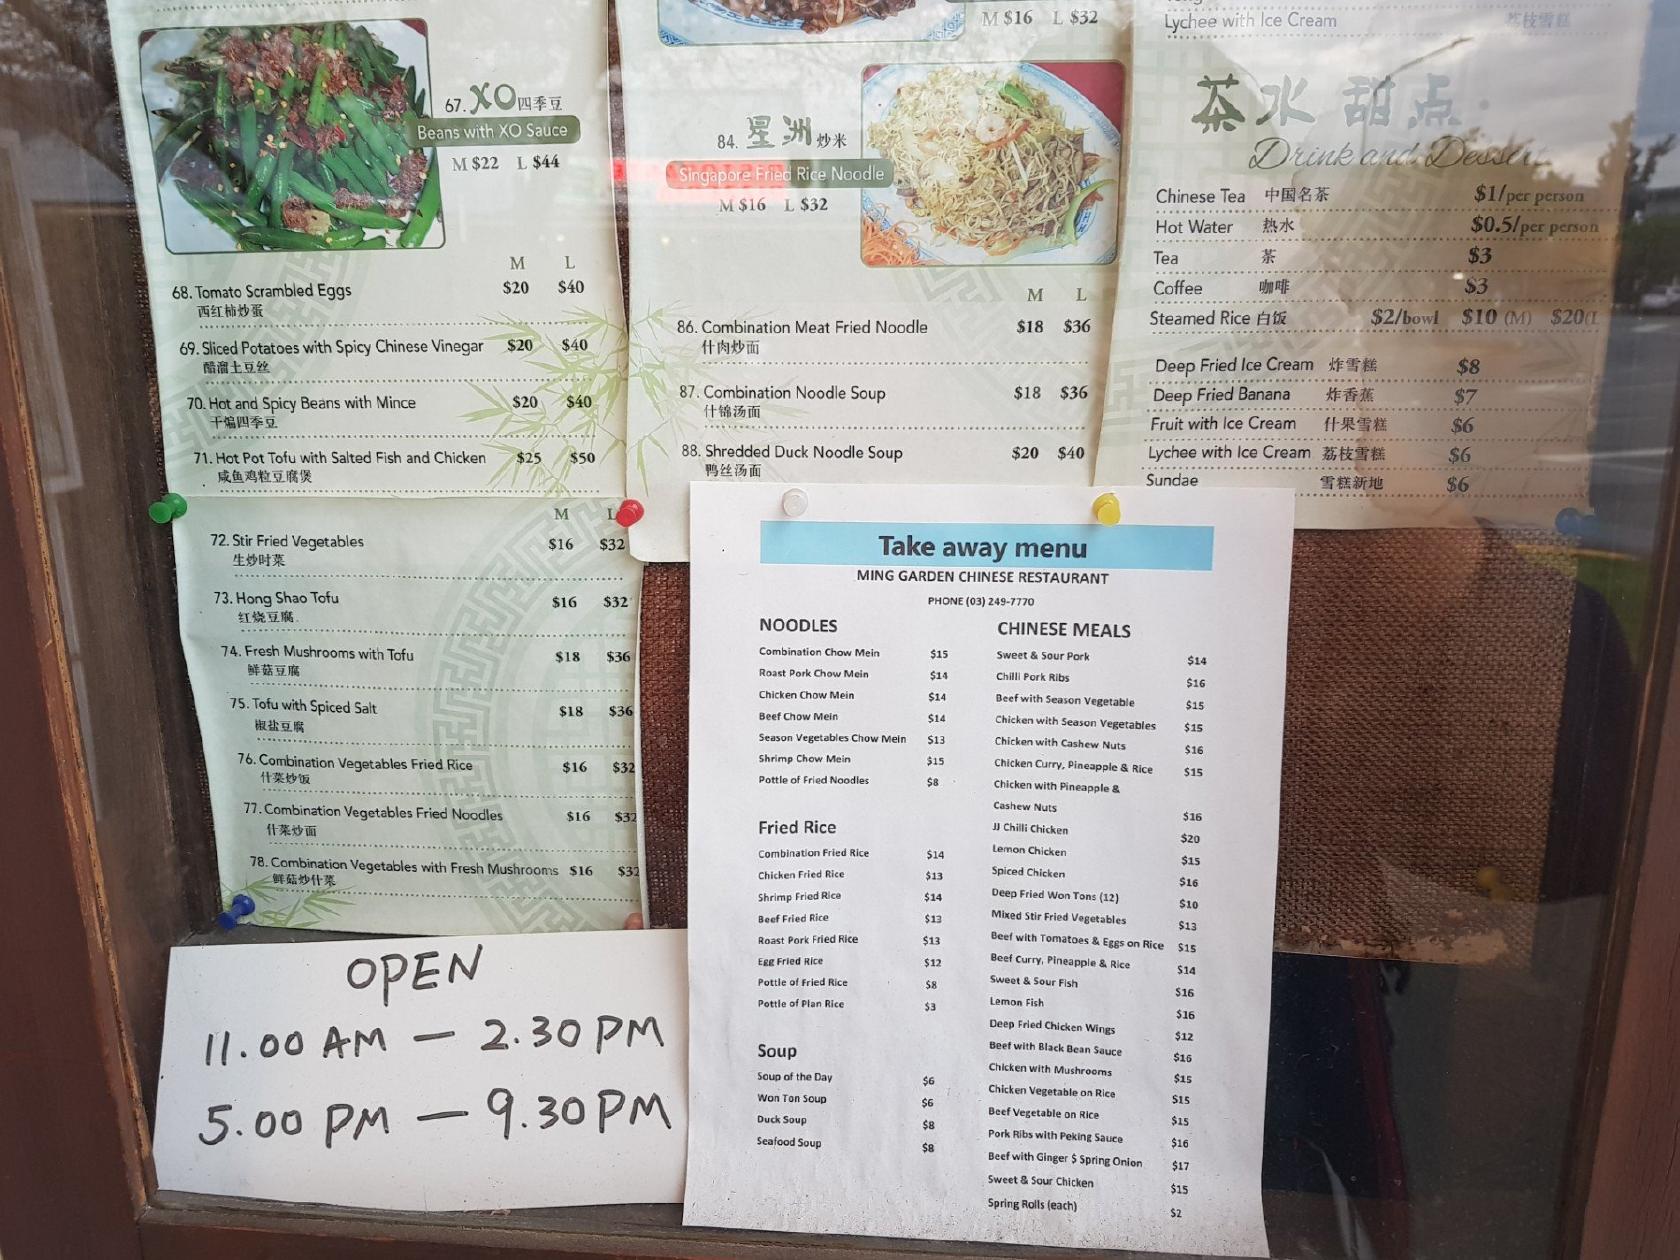 67. XO四季豆
Beans with XO Sauce
M $22 L $44
M L
68. Tomato Scrambled Eggs $20 $40
西红柿炒蛋
69. Sliced Potatoes with Spicy Chinese Vinegar $20 $40
醋溜土豆丝
70. Hot and Spicy Beans with Mince $20 $40
干煸四季豆
71. Hot Pot Tofu with Salted Fish and Chicken $25 $50
咸鱼鸡粒豆腐煲
M L
72. Stir Fried Vegetables $16 $32
生炒时菜
73. Hong Shao Tofu $16 $32
红烧豆腐
74. Fresh Mushrooms with Tofu $18 $36
鲜菇豆腐
75. Tofu with Spiced Salt $18 $36
椒盐豆腐
76. Combination Vegetables Fried Rice $16 $32
什菜炒饭
77. Combination Vegetables Fried Noodles $16 $32
什菜炒面
78. Combination Vegetables with Fresh Mushrooms $16 $32
鲜菇炒什菜
M $16 L $32
84. 星洲炒米
Singapore Fried Rice Noodle
M $16 L $32
M L
86. Combination Meat Fried Noodle $18 $36
什肉炒面
87. Combination Noodle Soup $18 $36
什锦汤面
88. Shredded Duck Noodle Soup $20 $40
鸭丝汤面
Lychee with Ice Cream 荔枝雪糕
茶水 甜点
Drink and Dessert
Chinese Tea 中国名茶 $1/per person
Hot Water 热水 $0.5/per person
Tea 茶 $3
Coffee 咖啡 $3
Steamed Rice 白饭 $2/bowl $10 (M) $20(L
Deep Fried Ice Cream 炸雪糕 $8
Deep Fried Banana 炸香蕉 $7
Fruit with Ice Cream 什果雪糕 $6
Lychee with Ice Cream 荔枝雪糕 $6
Sundae 雪糕新地 $6
Take away menu
MING GARDEN CHINESE RESTAURANT
PHONE (03) 249-7770
NOODLES
Combination Chow Mein $15
Roast Pork Chow Mein $14
Chicken Chow Mein $14
Beef Chow Mein $14
Season Vegetables Chow Mein $13
Shrimp Chow Mein $15
Pottle of Fried Noodles $8
Fried Rice
Combination Fried Rice $14
Chicken Fried Rice $13
Shrimp Fried Rice $14
Beef Fried Rice $13
Roast Pork Fried Rice $13
Egg Fried Rice $12
Pottle of Fried Rice $8
Pottle of Plan Rice $3
Soup
Soup of the Day $6
Won Ton Soup $6
Duck Soup $8
Seafood Soup $8
CHINESE MEALS
Sweet & Sour Pork $14
Chilli Pork Ribs $16
Beef with Season Vegetable $15
Chicken with Season Vegetables $15
Chicken with Cashew Nuts $16
Chicken Curry, Pineapple & Rice $15
Chicken with Pineapple &
Cashew Nuts $16
JJ Chilli Chicken $20
Lemon Chicken $15
Spiced Chicken $16
Deep Fried Won Tons (12) $10
Mixed Stir Fried Vegetables $13
Beef with Tomatoes & Eggs on Rice $15
Beef Curry, Pineapple & Rice $14
Sweet & Sour Fish $16
Lemon Fish $16
Deep Fried Chicken Wings $12
Beef with Black Bean Sauce $16
Chicken with Mushrooms $15
Chicken Vegetable on Rice $15
Beef Vegetable on Rice $15
Pork Ribs with Peking Sauce $16
Beef with Ginger $ Spring Onion $17
Sweet & Sour Chicken $15
Spring Rolls (each) $2
OPEN
11.00 AM — 2.30 PM
5.00 PM — 9.30 PM